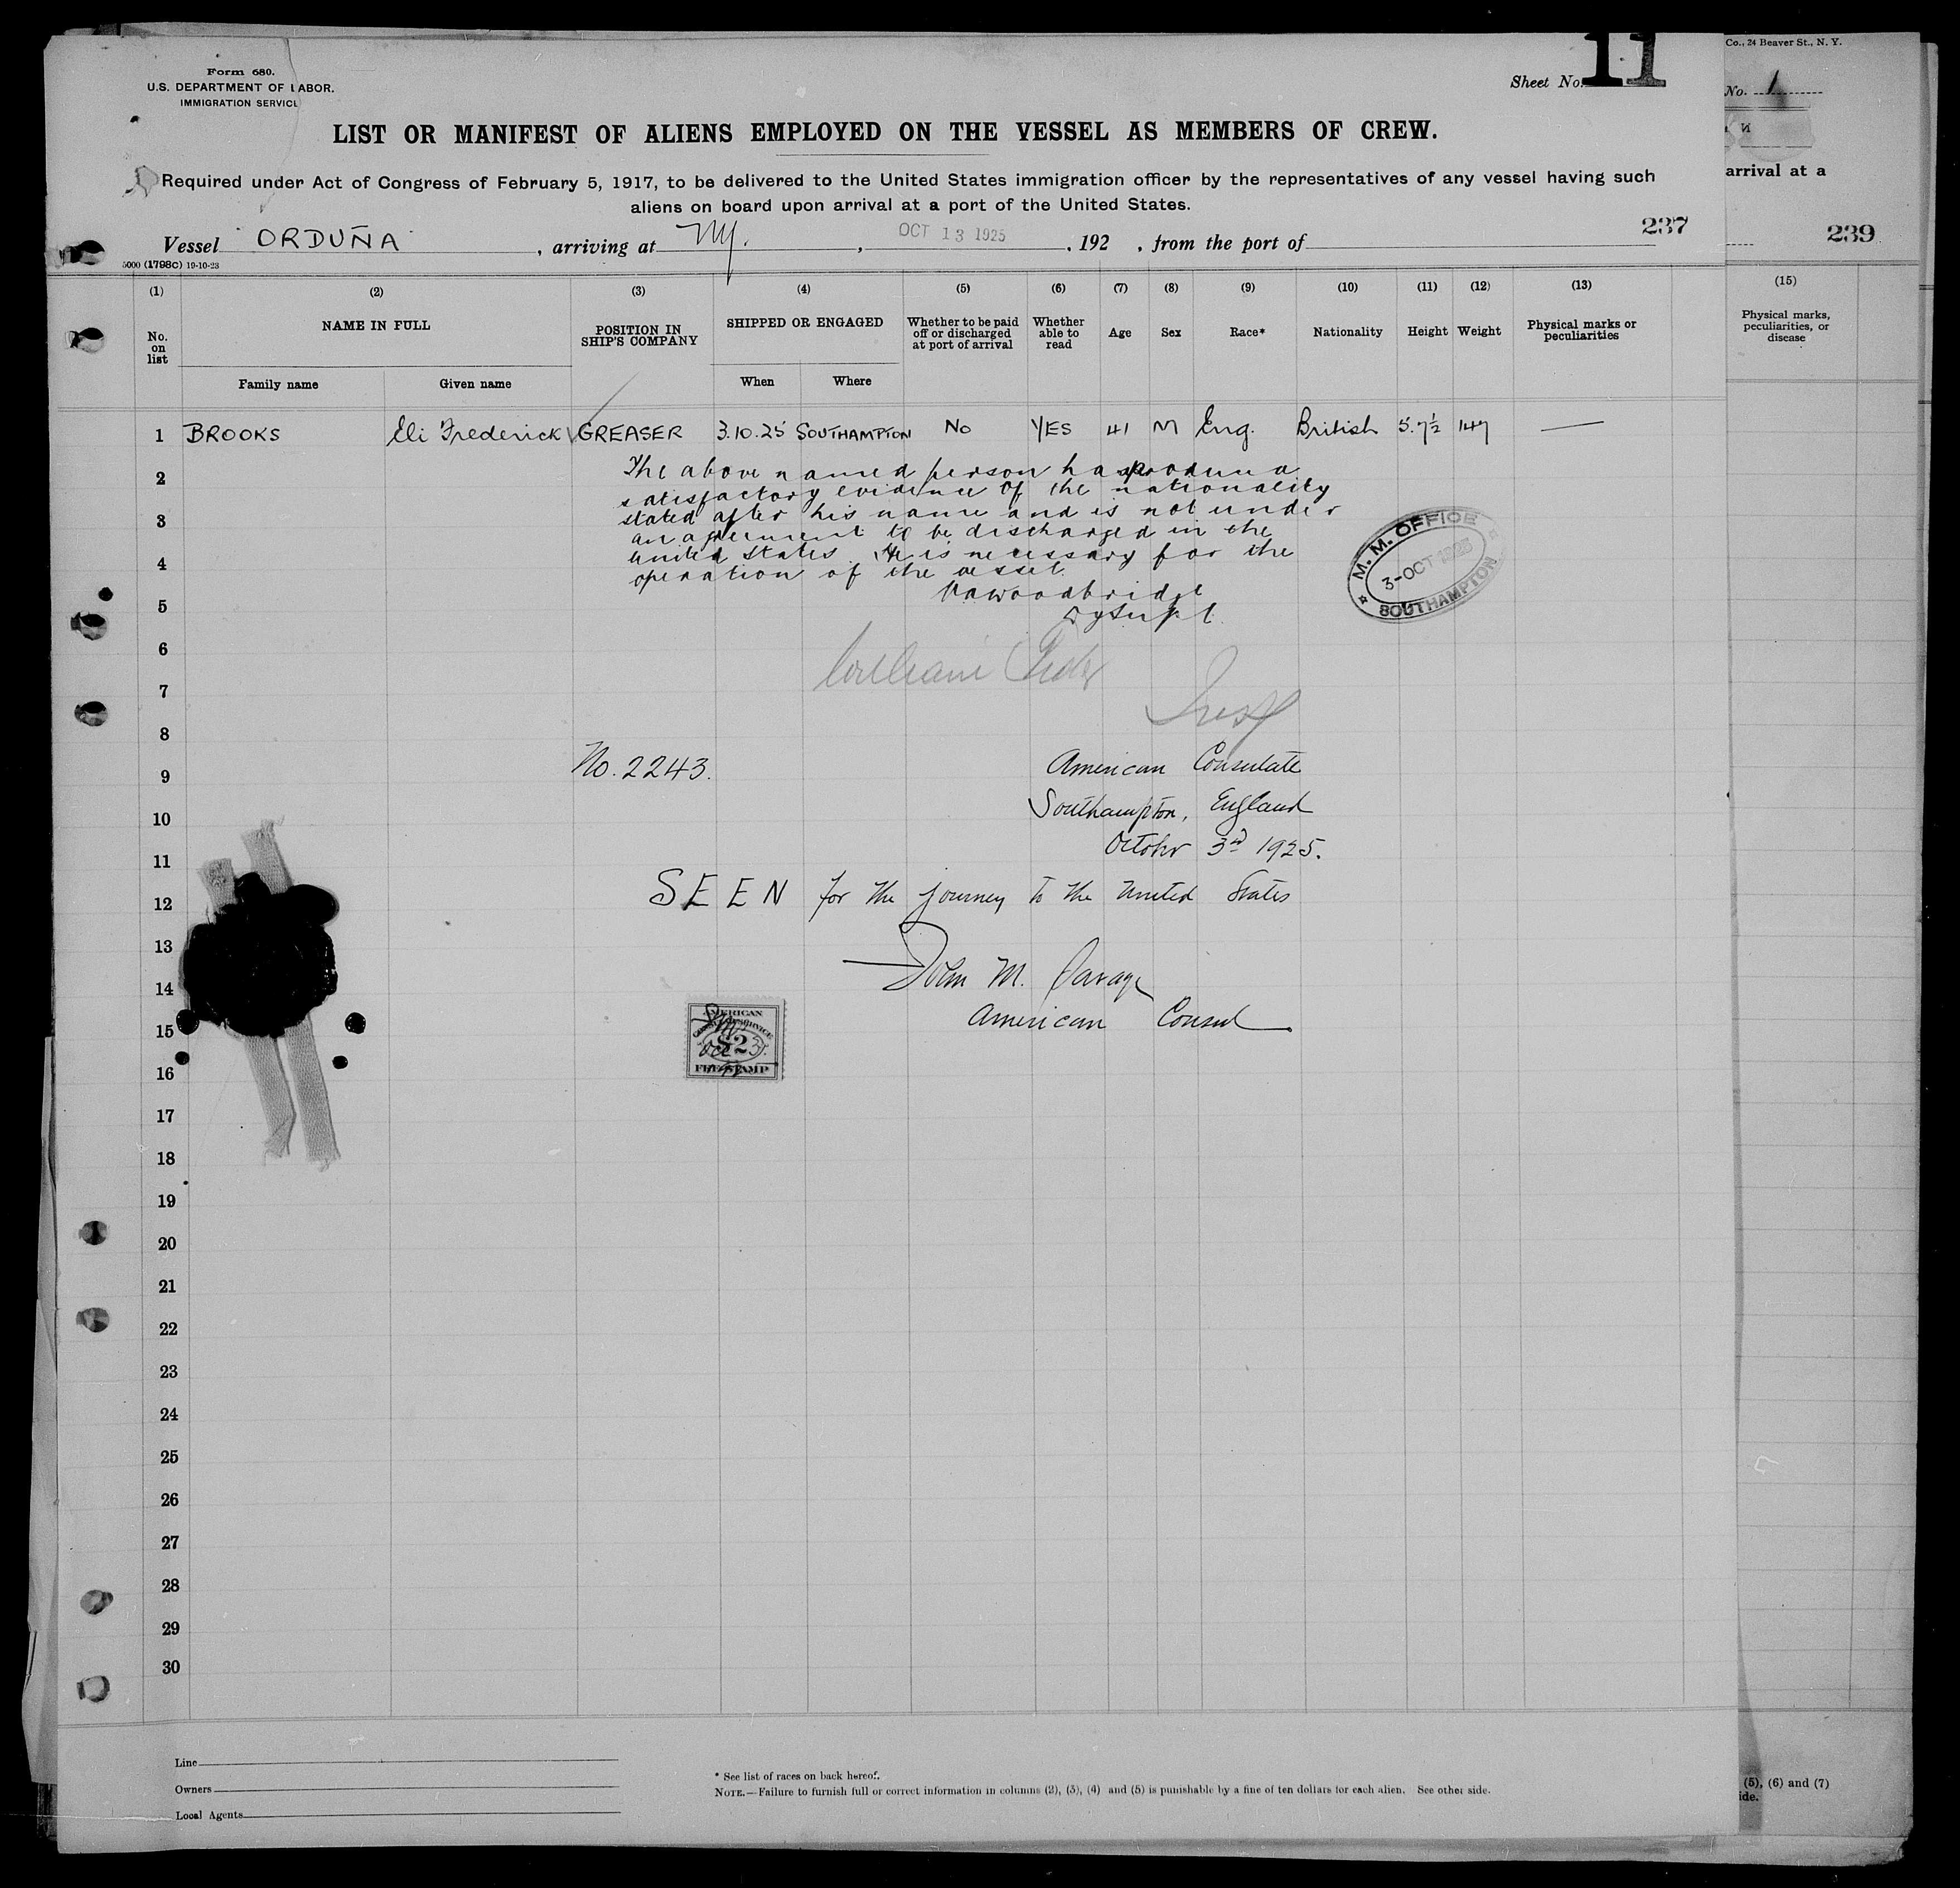 Form 680.
U.S. DEPARTMENT OF LABOR.
IMMIGRATION SERVICE
Sheet No. 11
LIST OR MANIFEST OF ALIENS EMPLOYED ON THE VESSEL AS MEMBERS OF CREW.
Required under Act of Congress of February 5, 1917, to be delivered to the United States immigration officer by the representatives of any vessel having such
aliens on board upon arrival at a port of the United States.
Vessel ORDUÑA, arriving at NY., OCT 13 1925, 192 , from the port of
237
5000 (1798c) 19-10-23
(1) (2) (3) (4) (5) (6) (7) (8) (9) (10) (11) (12) (13)
No. on list
NAME IN FULL
Family name
Given name
POSITION IN SHIP'S COMPANY
SHIPPED OR ENGAGED
When
Where
Whether to be paid off or discharged at port of arrival
Whether able to read
Age
Sex
Race*
Nationality
Height
Weight
Physical marks or peculiarities
1 BROOKS Eli Frederick GREASER 3.10.25 SOUTHAMPTON No YES 41 M Eng. British 5.7½ 147 —
2
3
4
5
6
7
8
9
10
11
12
13
14
15
16
17
18
19
20
21
22
23
24
25
26
27
28
29
30
The above named person has produced
satisfactory evidence of the nationality
stated after his name and is not under
an agreement to be discharged in the
United States. He is necessary for the
operation of the vessel.
Woodbridge
Dy Supt.
M. M. OFFICE
3-OCT 1925
SOUTHAMPTON
William
No. 2243.
American Consulate
Southampton, England
October 3rd 1925.
SEEN for the journey to the United States
John M. Savage
American Consul
AMERICAN
CONSULAR SERVICE
$2
FEE STAMP
Line
Owners
Local Agents
* See list of races on back hereof.
NOTE.—Failure to furnish full or correct information in columns (2), (3), (4) and (5) is punishable by a fine of ten dollars for each alien. See other side.
Co., 24 Beaver St., N. Y.
No. 1
arrival at a
239
(15)
Physical marks,
peculiarities, or
disease
(5), (6) and (7)
ide.